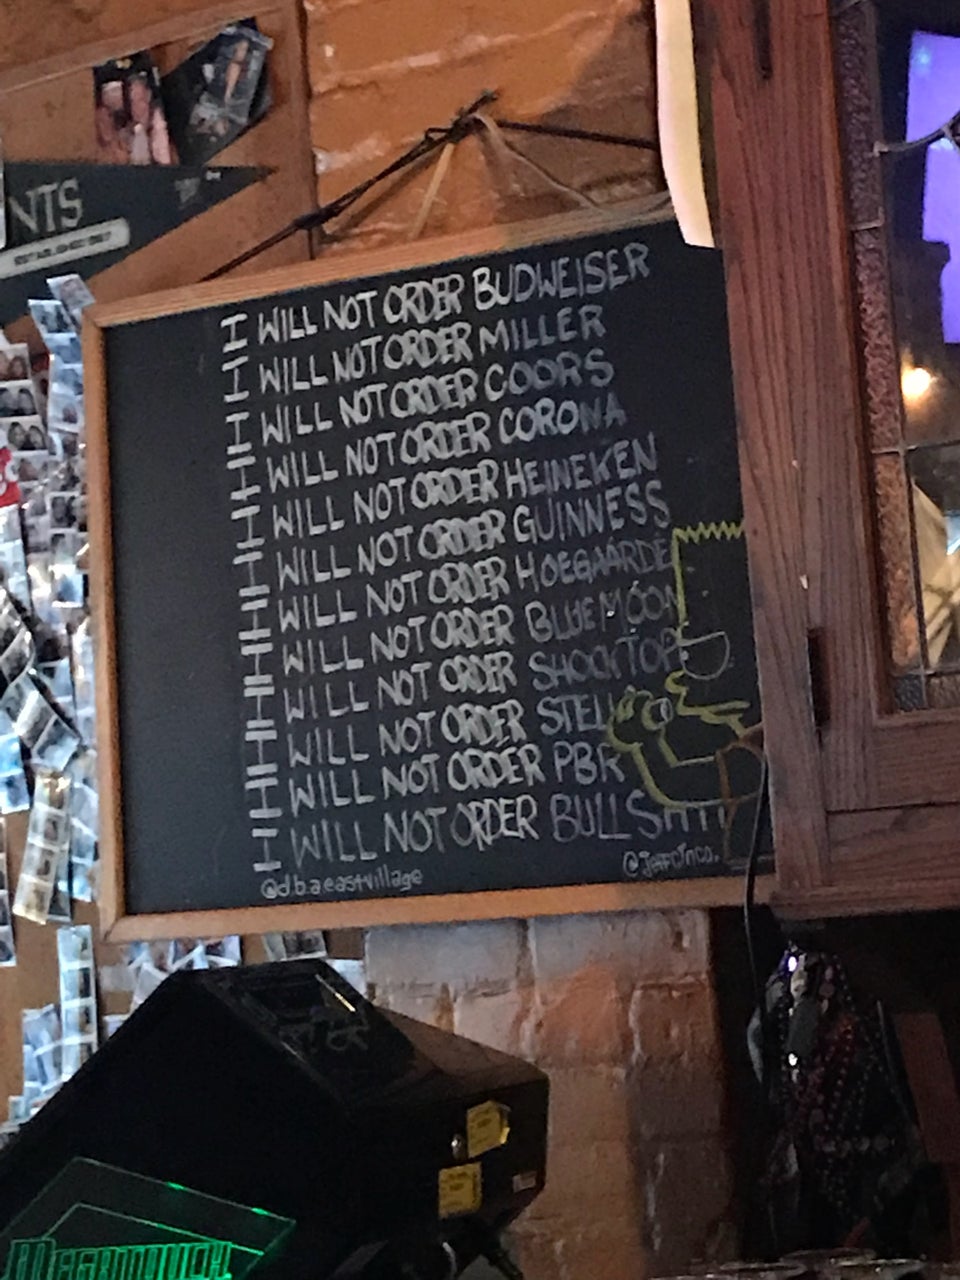 NTS
I WILL NOT ORDER BUDWEISER
I WILL NOT ORDER MILLER
I WILL NOT ORDER COORS
I WILL NOT ORDER CORONA
I WILL NOT ORDER HEINEKEN
I WILL NOT ORDER GUINNESS
I WILL NOT ORDER HOEGAARDE
I WILL NOT ORDER BLUE MOON
I WILL NOT ORDER SHOCKTOP
I WILL NOT ORDER STELL
I WILL NOT ORDER PBR
I WILL NOT ORDER BULLSHIT
@d.b.a eastvillage
MEGATOUCH